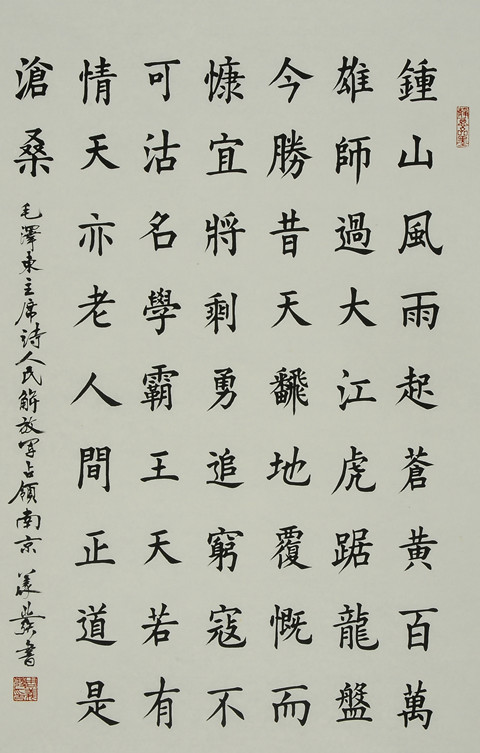 鍾山風雨起蒼黃百萬
雄師過大江虎踞龍盤
今勝昔天飜地覆慨而
慷宜將剩勇追窮寇不
可沽名學霸王天若有
情天亦老人間正道是
滄桑
毛澤東主席詩人民解放軍占領南京 書